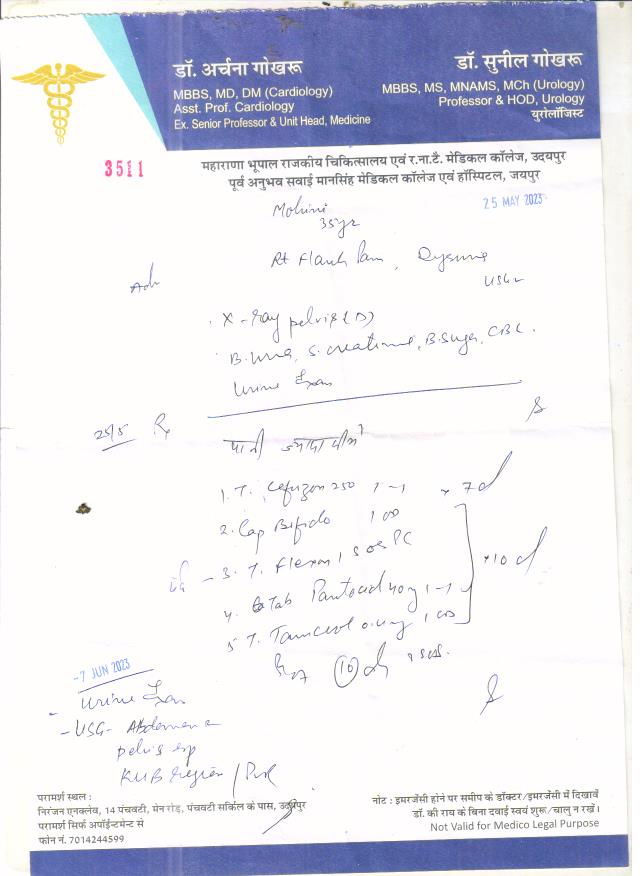 डॉ. अर्चना गोखरू
MBBS, MD, DM (Cardiology)
Asst. Prof. Cardiology
Ex. Senior Professor & Unit Head, Medicine
डॉ. सुनील गोखरू
MBBS, MS, MNAMS, MCh (Urology)
Professor & HOD, Urology
यूरोलॉजिस्ट
3511
महाराणा भूपाल राजकीय चिकित्सालय एवं र.ना.टै. मेडिकल कॉलेज, उदयपुर
पूर्व अनुभव सवाई मानसिंह मेडिकल कॉलेज एवं हॉस्पिटल, जयपुर
25 MAY 2023
Mohini
35yr
Rt Flank Pain,
Adv
X-Ray pelvis (D)
B. Urea, S. creatinine, B. Sugar, CBC.
Urine Exam
25/5 Rx
पानी ज्यादा पीयें
1. T. Cefuzon 250 1-1 x 7d
2. Cap Bifido 1 OD
3. T. Flexon 1 SOS PC
4. Tab Pantocid 40mg 1-1
x10 d
5 T. 0.4mg 1 OD
-7 JUN 2023
Urine Exam
- USG - Abdomen &
pelvis esp
KUB region / PVR
परामर्श स्थल :
निरंजन एनक्लेव, 14 पंचवटी, मेन रोड़, पंचवटी सर्किल के पास, उदयपुर
परामर्श सिर्फ अपॉईन्टमेन्ट से
फोन नं. 7014244599
नोट : इमरजेंसी होने पर समीप के डॉक्टर/इमरजेंसी में दिखावें
डॉ. की राय के बिना दवाई स्वयं शुरू/चालु न रखें।
Not Valid for Medico Legal Purpose